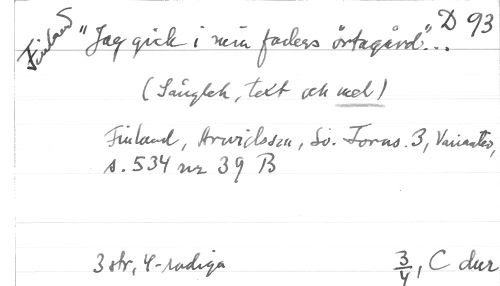 Finland
"Jag gick i min faders örtagård"... D 93
(Sånglek, text och mel)
Finland, Arwidsson, Sv. Forns. 3, Varianter,
s. 534 nr 39 B
3 str, 4-radiga 3/4, C dur